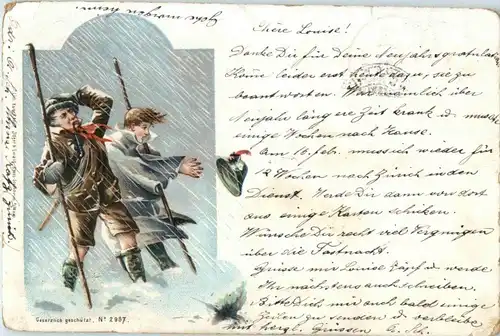 Chère Louise!
Danke Dir für Deine Neujahrsgratulat.
Kome leider erst heute dazu, sie zu
beantworten. War nämlich über
Neujahr längere Zeit krank u. musste
einige Wochen nach Hause.
Am 16. Feb. muss ich wieder für
Wochen nach Zürich in den
Dienst. Werde Dir dann von dort
aus einige Karten schiken.
Wünsche Dir recht viel Vergnügen
über die Fastnacht.
Grüsse mir Louise Zäpf u. werde
Ihr nächstens auch schreiben.
Bitte Dich mir auch bald einige
Zeilen zu senden u. verbleibe
mit herzl. Grüssen
Gesetzlich geschützt. No 2957.